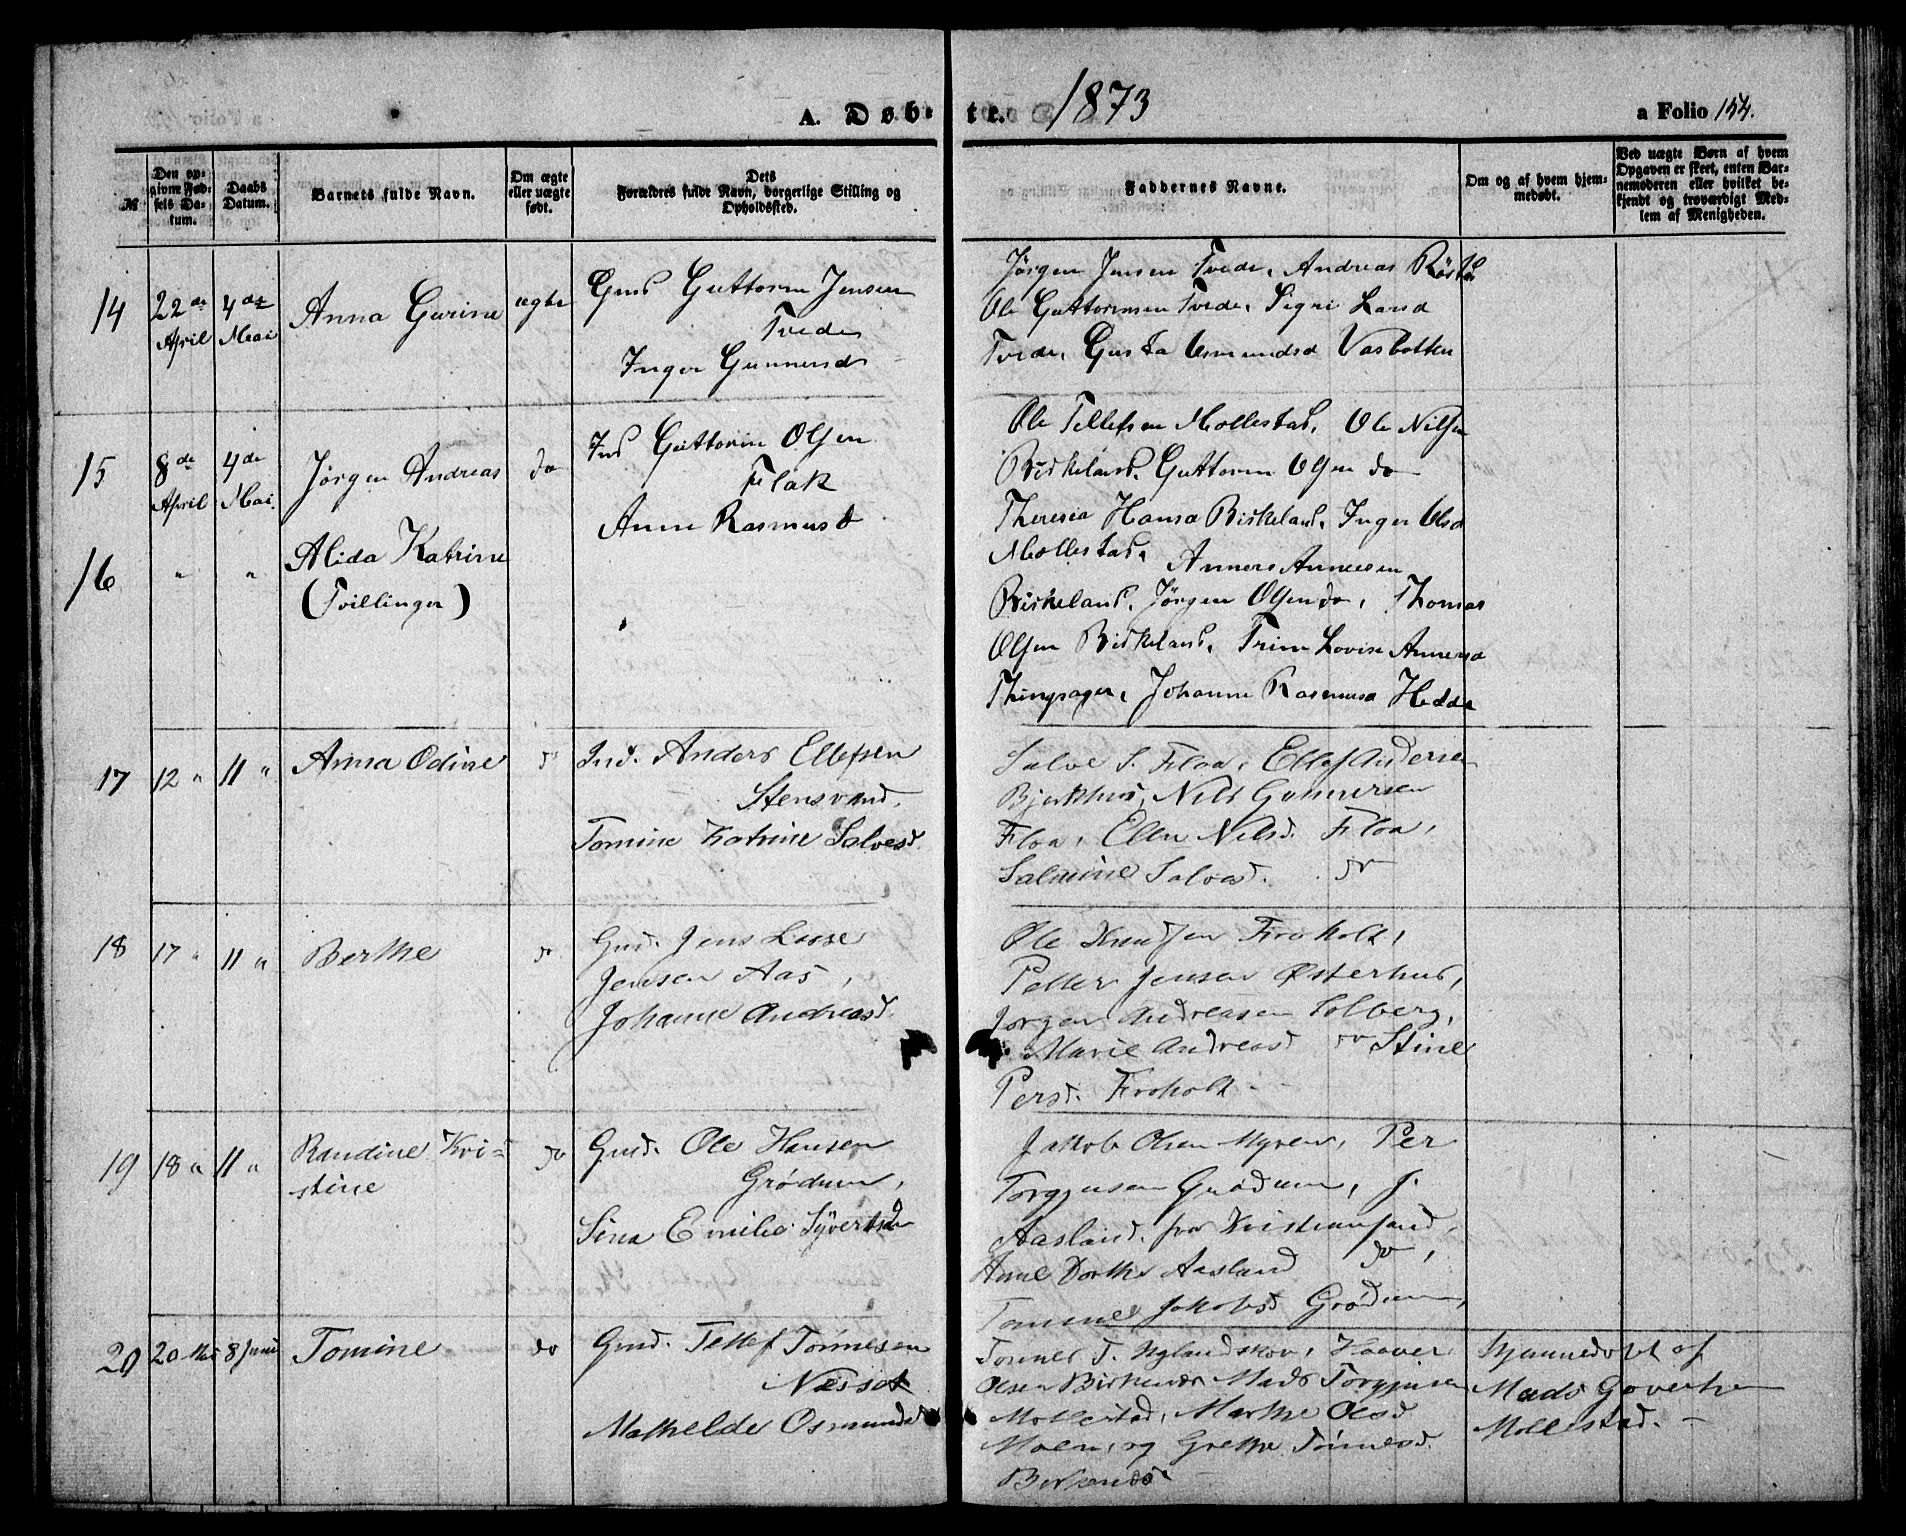 A. Døbte. 1873 a Folio 154.
№
Den opgivne Fødsels Datum.
Daabs Datum.
Barnets fulde Navn.
Om ægte eller uægte født.
Dets Forældres fulde Navn, borgerlige Stilling og Opholdssted.
Faddernes Navne.
Om og af hvem hjemmedøbt.
Ved uægte Børn af hvem Opgaven er skeet, enten Barnemoderen eller hvilket bekjendt og troværdigt Medlem af Menigheden.
14
22de April
4de Mai
Anna Gurine
ægte
Gmd Guttorm Jensen
Tvede
Inger Gunnersd
Jørgen Jensen Tvede, Andreas
Ole Guttormsen Tvede, Sigri Larsd
Tvede, Gusta Osmundsd Vasbotten
15
8de April
4de Mai.
Jørgen Andreas
do
Ind Guttorm Olsen
Flak
Anne Rasmusd
Ole Tellefsen Mollestad, Ole Nilsen
Birkeland, Guttorm Olsen do
Theresia Hansd Birkeland, Inger Olsd
Mollestad,
16
"
"
Alida Katrine
(Tvillinger)
Anners Annersen
Birkeland, Jørgen Olsen do, Thomas
Olsen Birkeland, Trine Lovise Annersd
Thingsager, Johanne Rasmusd Hedde
17
12 "
11 "
Anna Odine
do
Ind. Anders Ellefsen
Stensvand,
Tomine Katrine Salvesd.
Salve S. Floa, Ellef Andersen
Bjørkhus, Nils Gunnersen
Floa, Ellen Nilsd. Floa,
Salmine Salvesd. do
18
17 "
11 "
Berthe
do
Gmd. Jens
Jensen Aas,
Johanne Andreasd.
Ole Knudsen Froholt,
Petter Jensen Østerhus,
Jørgen Andreasen Solberg,
Marie Andreasd do Stine
Persd. Froholt -
19
18 "
11 "
Randine Kri-
stine
do
Gmd. Ole Hansen
Grødum,
Sina Emilie Syvertsd
Jakob Olsen Myren, Per
Torgjusen Grødum, J.
Aasland fra Kristiansand,
Anne Dorthe Aasland do,
Tomine Jakobsd Grødum,
20
20 Mai
8 Juni
Tomine
do
Gmd. Tellef Tønnesen
Næsset
Mathelde Osmundsd
Tønnes T. Uglandskov, Haaver
Olsen Birkenæs Mads Torgjusen
Mollestad, Marthe Olsd
Moen, og Grethe Tønnesd.
Birkenæs
Hjemmedøbt af
Mads
Mollestad. -